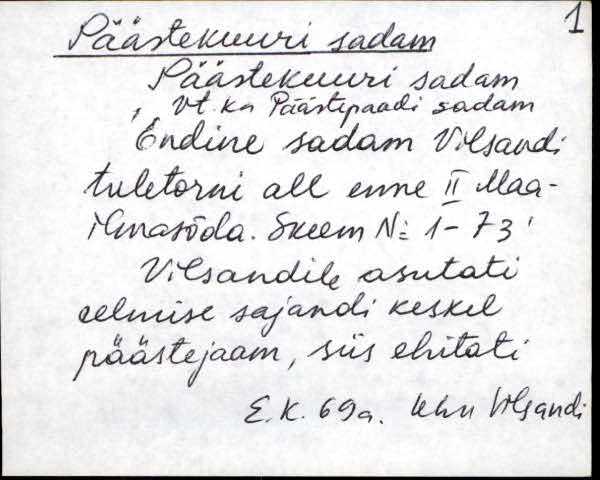 1
Päästekuuri sadam
Päästekuuri sadam
, Vt. ka Päästepaadi sadam
Endine sadam Vilsandi
tuletorni all enne II Maa-
ilmasõda. Skeem N: 1-73'
Vilsandile asutati
eelmise sajandi keskel
päästejaam, siis ehitati
E.K. 69a. Vilsandi